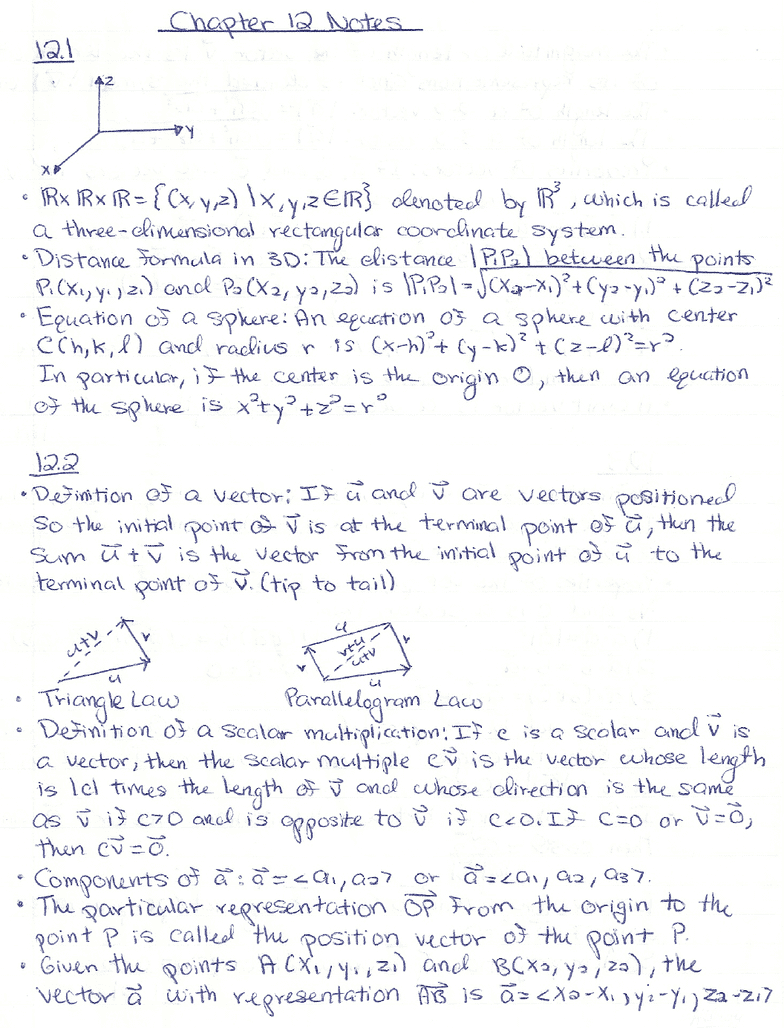 Chapter 12 Notes
12.1
z
y
x
• ℝxℝxℝ = {(x,y,z) | x,y,z ∈ ℝ} denoted by ℝ³, which is called
a three-dimensional rectangular coordinate system.
• Distance Formula in 3D: The distance |P₁P₂| between the points
P₁(x₁,y₁,z₁) and P₂(x₂,y₂,z₂) is |P₁P₂|=√(x₂-x₁)²+(y₂-y₁)²+(z₂-z₁)²
• Equation of a sphere: An equation of a sphere with center
C(h,k,l) and radius r is (x-h)²+(y-k)²+(z-l)²=r².
In particular, if the center is the origin O, then an equation
of the sphere is x²+y²+z²=r²
12.2
• Definition of a vector: If u⃗ and v⃗ are vectors positioned
so the initial point of v⃗ is at the terminal point of u⃗, then the
sum u⃗+v⃗ is the vector from the initial point of u⃗ to the
terminal point of v⃗. (tip to tail)
u+v v u
u v v+u u+v v u
• Triangle Law Parallelogram Law
• Definition of a scalar multiplication: If c is a scalar and v⃗ is
a vector, then the scalar multiple cv⃗ is the vector whose length
is |c| times the length of v⃗ and whose direction is the same
as v⃗ if c>0 and is opposite to v⃗ if c<0. If c=0 or v⃗=0⃗,
then cv⃗=0⃗.
• Components of a⃗: a⃗=<a₁,a₂> or a⃗=<a₁,a₂,a₃>.
• The particular representation OP⃗ from the origin to the
point P is called the position vector of the point P.
• Given the points A(x₁,y₁,z₁) and B(x₂,y₂,z₂), the
vector a⃗ with representation AB⃗ is a⃗=<x₂-x₁,y₂-y₁,z₂-z₁>